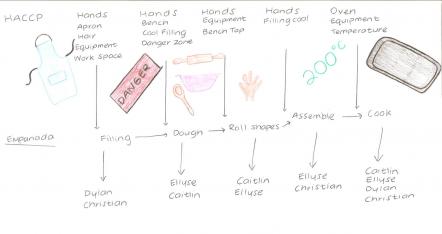 HACCP
Hands
Apron
Hair
Equipment
Work space
Hands
Bench
Cool Filling
Danger Zone
Hands
Equipment
Bench Top
Hands
Filling cool
Oven
Equipment
Temperature
DANGER
200°C
Empanada
Filling
Dough
Roll shapes
Assemble
Cook
Dylan
Christian
Ellyse
Caitlin
Caitlin
Ellyse
Ellyse
Christian
Caitlin
Ellyse
Dylan
Christian